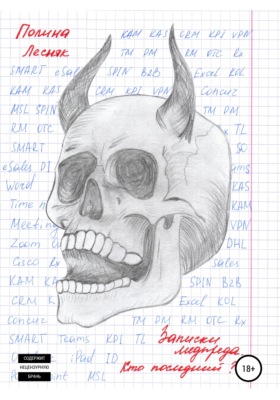 Полина KAM KAS CRM KPI VPN
Лесняк TM PM RM OTC Rx
SMART eSales SPIN B2B Excel KOL
KAM KAS CRM KPI VPN Concur
MSL SPIN TM
RM OTC TL
SMART
eSales
Word KAS
Time KAM
Meeting VPN
Zoom DHL
Cisco Rx Sales
KAM SPIN B2B
CRM Excel KOL
Concur TM PM RM OTC Rx
SMART Teams KPI TL Записки
iPad ID медпреда
MSL Кто последний?
СОДЕРЖИТ
НЕЦЕНЗУРНУЮ
БРАНЬ
18+